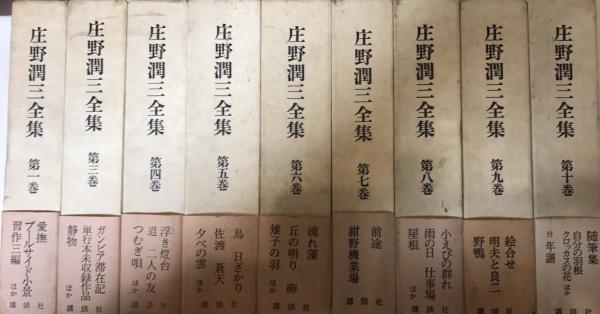 庄野潤三全集 第一巻
愛撫
プールサイド小景
習作三編
ほか
講談社
庄野潤三全集 第三巻
ガンビア滞在記
単行本未収録作品
静物
ほか
講談社
庄野潤三全集 第四巻
浮き燈台
道 一人の友
つむぎ唄
ほか
講談社
庄野潤三全集 第五巻
鳥 日ざかり
佐渡 蒼天
夕べの雲
ほか
講談社
庄野潤三全集 第六巻
流れ藻
丘の明り 卵
雉子の羽
ほか
講談社
庄野潤三全集 第七巻
前途
紺野機業場
ほか
講談社
庄野潤三全集 第八巻
小えびの群れ
雨の日 仕事場
屋根
ほか
講談社
庄野潤三全集 第九巻
絵合せ
明夫と良二
野鴨
ほか
講談社
庄野潤三全集 第十巻
随筆集
自分の羽根
クロッカスの花 ほか
付 年譜
講談社